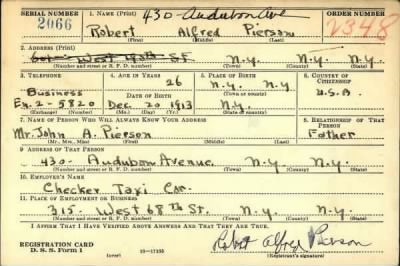 SERIAL NUMBER 1. NAME (Print) 430 - Audubon Ave ORDER NUMBER
2066 Robert Alfred Pierson 2348
(First) (Middle) (Last)
2. ADDRESS (Print)
West St. N.Y. N.Y.
(Number and street or R. F. D. number) (Town) (County) (State)
3. TELEPHONE 4. AGE IN YEARS 5. PLACE OF BIRTH 6. COUNTRY OF CITIZENSHIP
Business 26 N.Y.
DATE OF BIRTH (Town or county) U.S.A
En. 2-5820 Dec. 20 1913 N.Y.
(Exchange) (Number) (Mo.) (Day) (Yr.) (State or country)
7. NAME OF PERSON WHO WILL ALWAYS KNOW YOUR ADDRESS 8. RELATIONSHIP OF THAT PERSON
Mr. John A. Pierson Father
(Mr., Mrs., Miss) (First) (Middle) (Last)
9. ADDRESS OF THAT PERSON
430 - Audubon Avenue. N.Y. N.Y.
(Number and street or R. F. D. number) (Town) (County) (State)
10. EMPLOYER'S NAME
Checker Taxi Cor.
11. PLACE OF EMPLOYMENT OR BUSINESS
315 - West 68th St. N.Y. N.Y.
(Number and street or R. F. D. number) (Town) (County) (State)
I AFFIRM THAT I HAVE VERIFIED ABOVE ANSWERS AND THAT THEY ARE TRUE.
REGISTRATION CARD
D. S. S. Form 1 (over) 16-17105 Robert Alfred Pierson
(Registrant's signature)